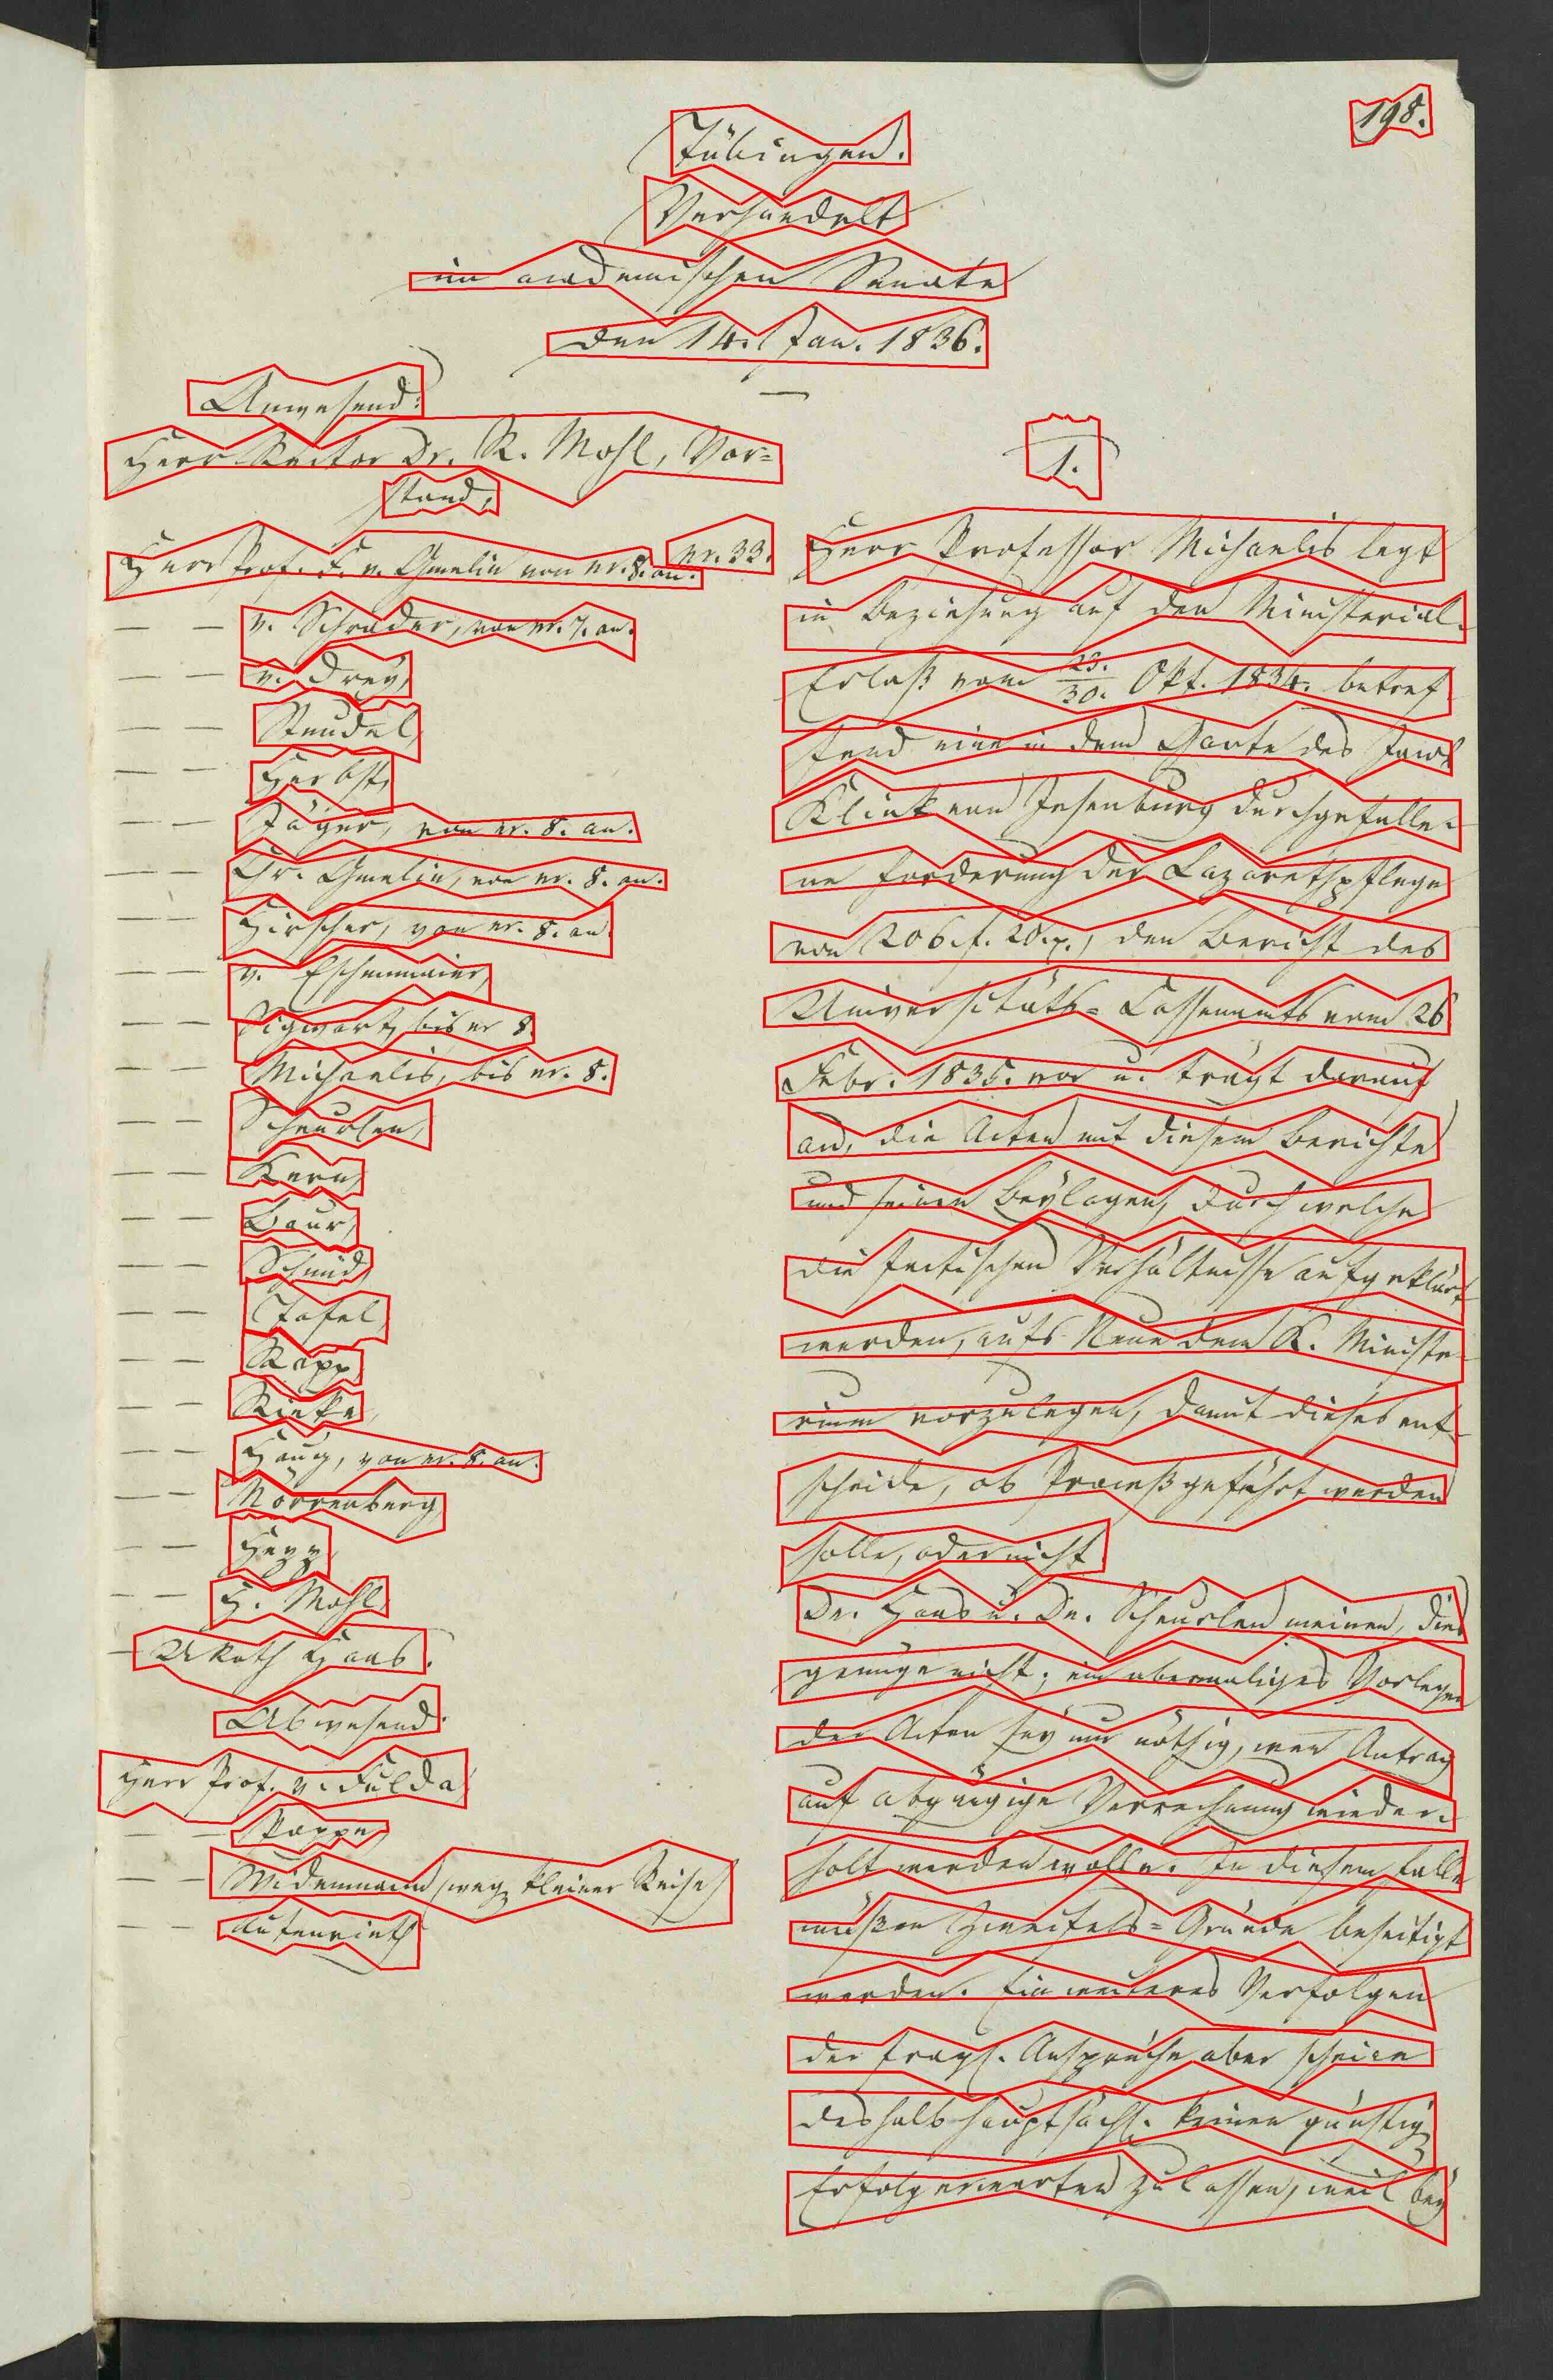 198.
Tübingen.
Verhandelt
im academischen Senate
den 14. Jan. 1836.
Anwesend:
Herr Rector Dr. R. Mohl, Vor=
stand,
Herr Prof. F. v. Gmelin von nr. 8. an.
nr. 33.
— — v. Schrader, von nr. 7. an.
— — v. Drey,
— — Steudel,
— — Herbst,
— — Jäger, von nr. 8. an.
— — Chr. Gmelin, von nr. 8. an.
— — Hirscher, von nr. 8. an.
— — v. Eschenmaier,
— — Sigwart, bis nr 8.
— — Michaelis, bis nr. 8.
— — Scheurlen,
— — Kern,
— — Baur,
— — Schmid,
— — Tafel,
— — Rapp
— — Riecke,
— — Haug, von nr. 8. an.
— — Mörrenberg
— — Hepp
— — H. Mohl,
— URath Haab.
Abwesend:
Herr Prof. v. Fulda
— — Poppe,
— — Widenmann, weg. kleiner Reise,
— — Autenrieth
1.
Herr Professor Michaelis legt
in Beziehung auf den Ministerial-
Erlaß vom 23./30. Okt. 1834. betref
fend eine in dem Gante des
Klink von Jesenburg durchgefalle-
ne Forderung der Lazarethpflege
von 206. f. 20. x., den Bericht des
Universitäts=Cassenamts vom 26
Febr. 1835. vor u. trägt darauf
an, die Acten mit diesem Berichte
und seinen Beylagen, durch welche
die factischen Verhältnisse aufgeklärt
werden, aufs Neue dem K. Ministe-
rium vorzulegen, damit dieses ent-
scheide, ob Proceß geführt werden
solle, oder nicht
Dr. Haab u. Dr. Scheurlen meinen, dies
genüge nicht; ein abermaliges Vorlegen
der Acten sey nur nöthig, wenn Antrag
auf abgängige Verrechnung wieder-
holt werden wolle. In diesem Falle
müßen Zweifels=Gründe beseitigt
werden. Ein weiteres Verfolgen
der fragl. Ansprüche aber scheine
deshalb hauptsächl. keinen günstig.
Erfolg erwarten zu lassen, weil bey